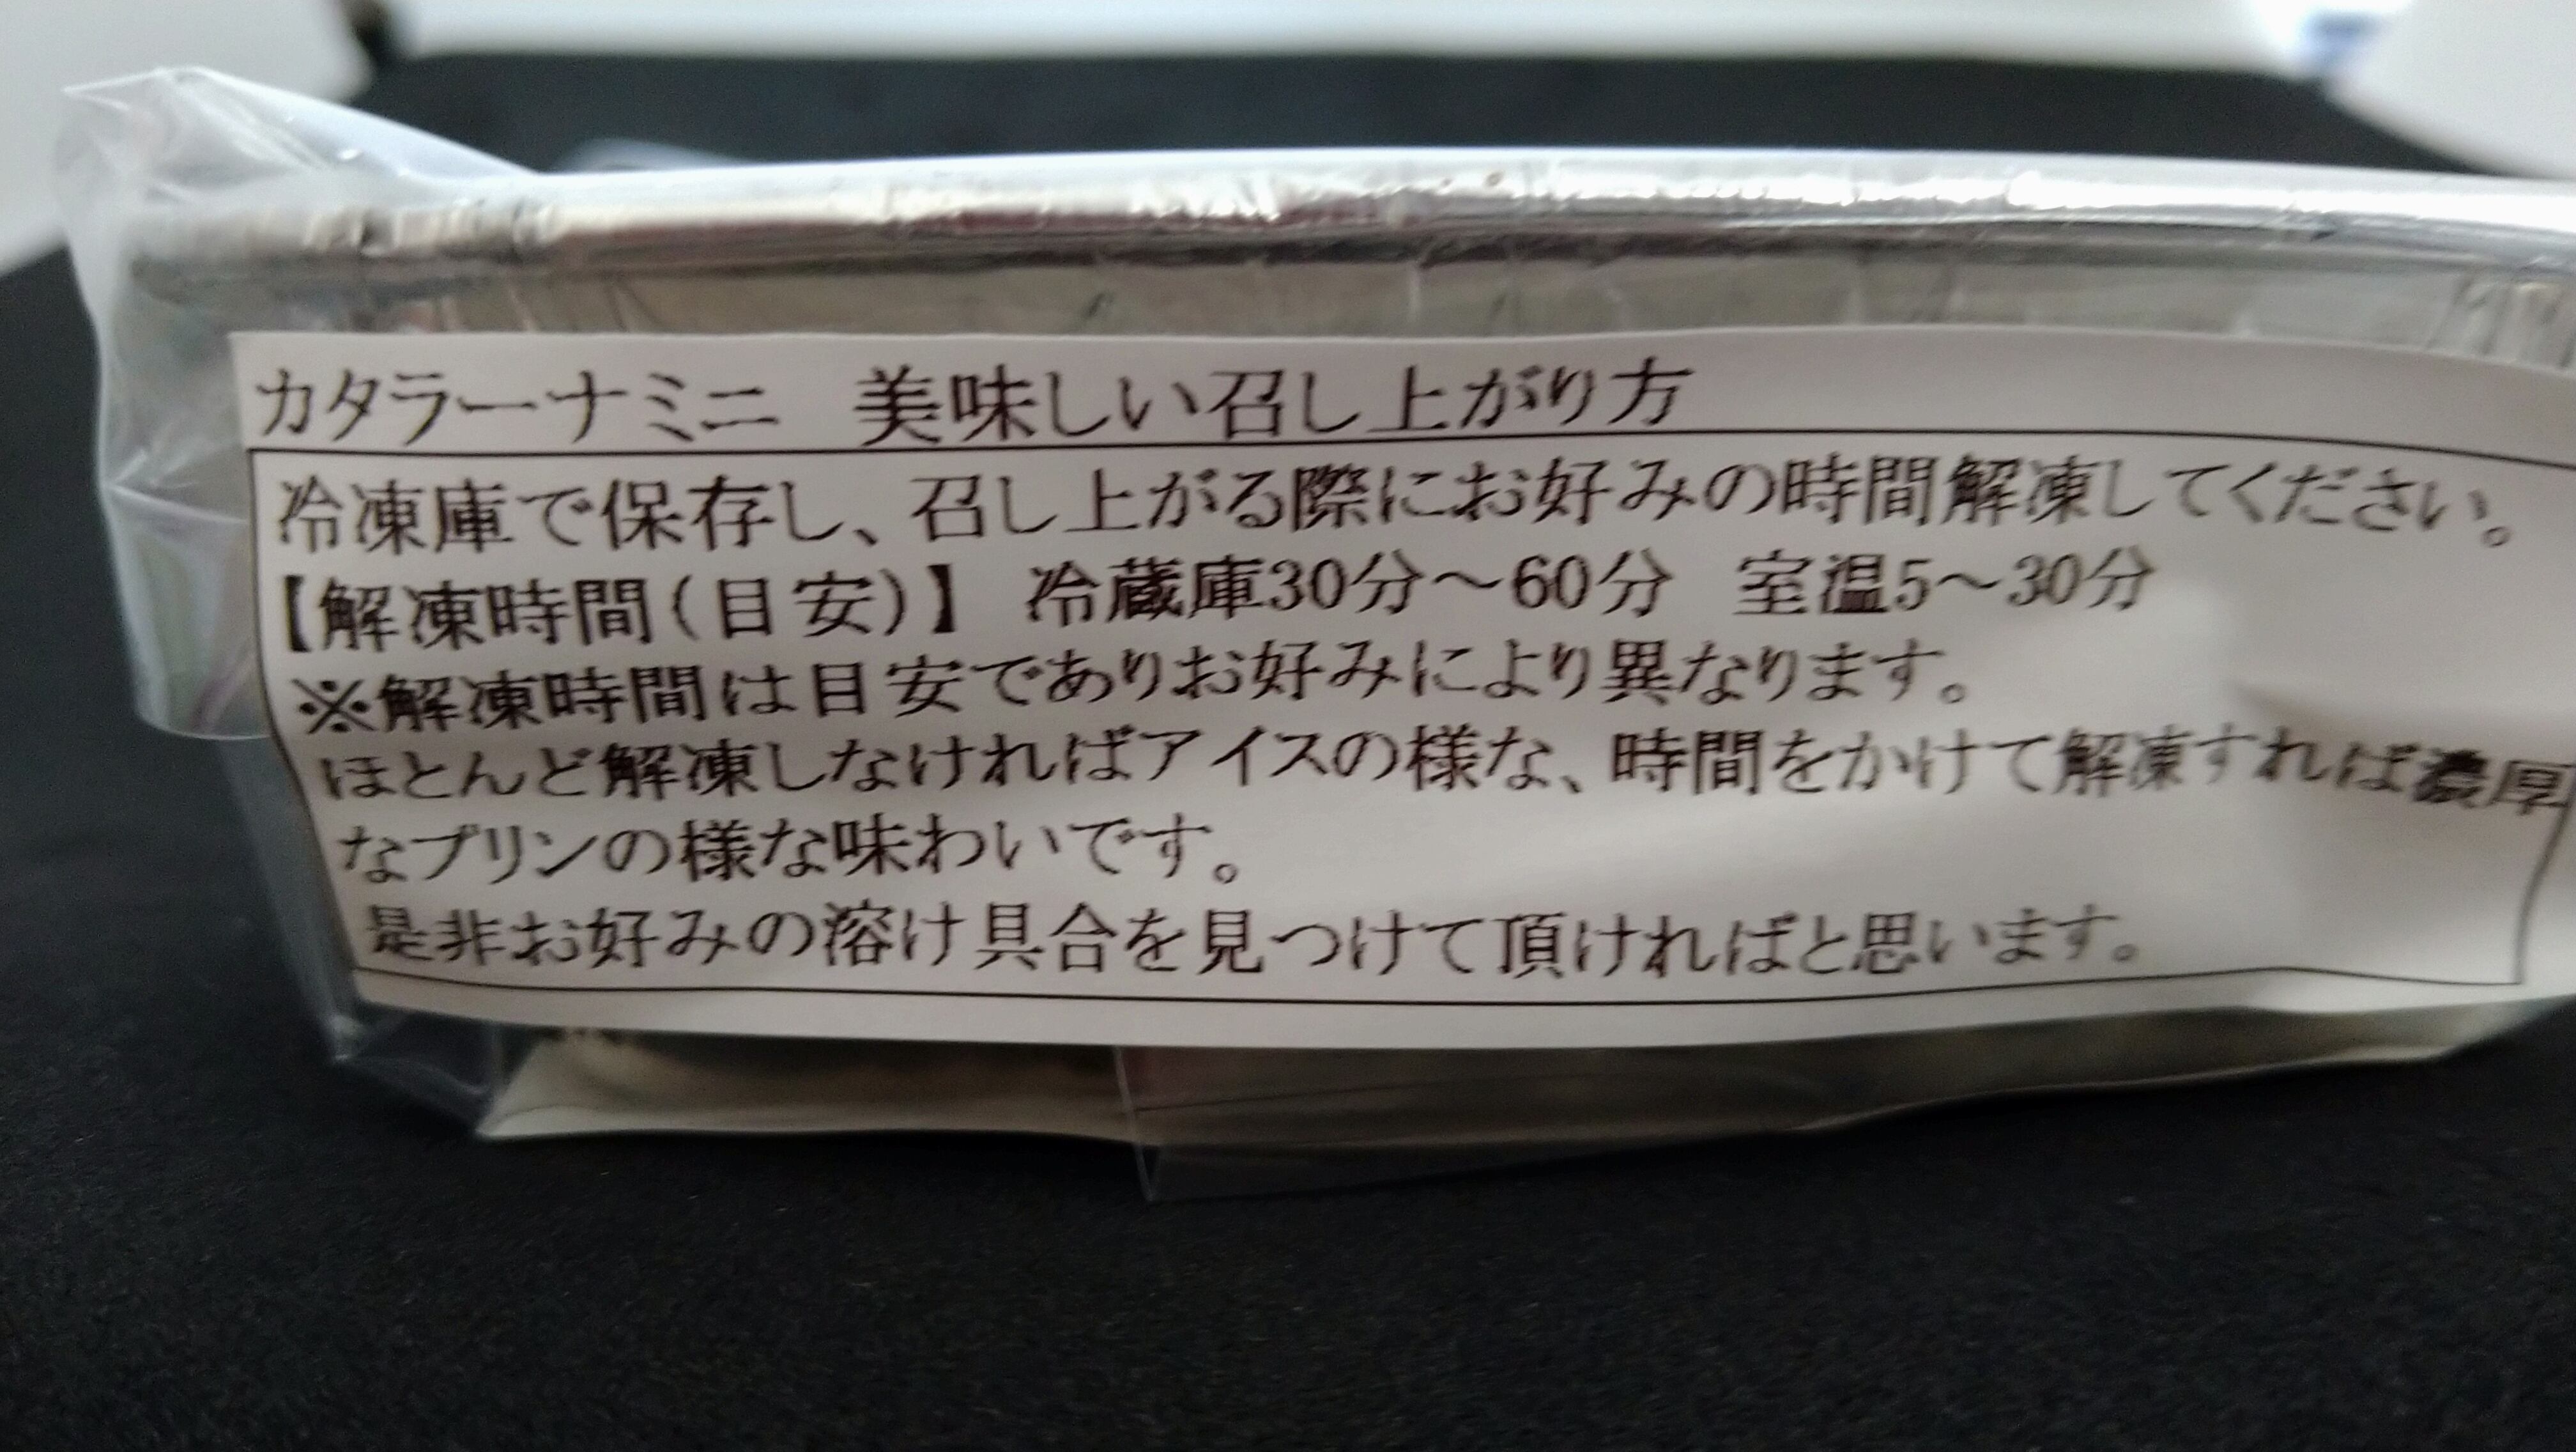 カタラーナミニ　美味しい召し上がり方
冷凍庫で保存し、召し上がる際にお好みの時間解凍してください。
【解凍時間(目安)】 冷蔵庫30分～60分　室温5～30分
※解凍時間は目安でありお好みにより異なります。
ほとんど解凍しなければアイスの様な、時間をかけて解凍すれば濃厚
なプリンの様な味わいです。
是非お好みの溶け具合を見つけて頂ければと思います。